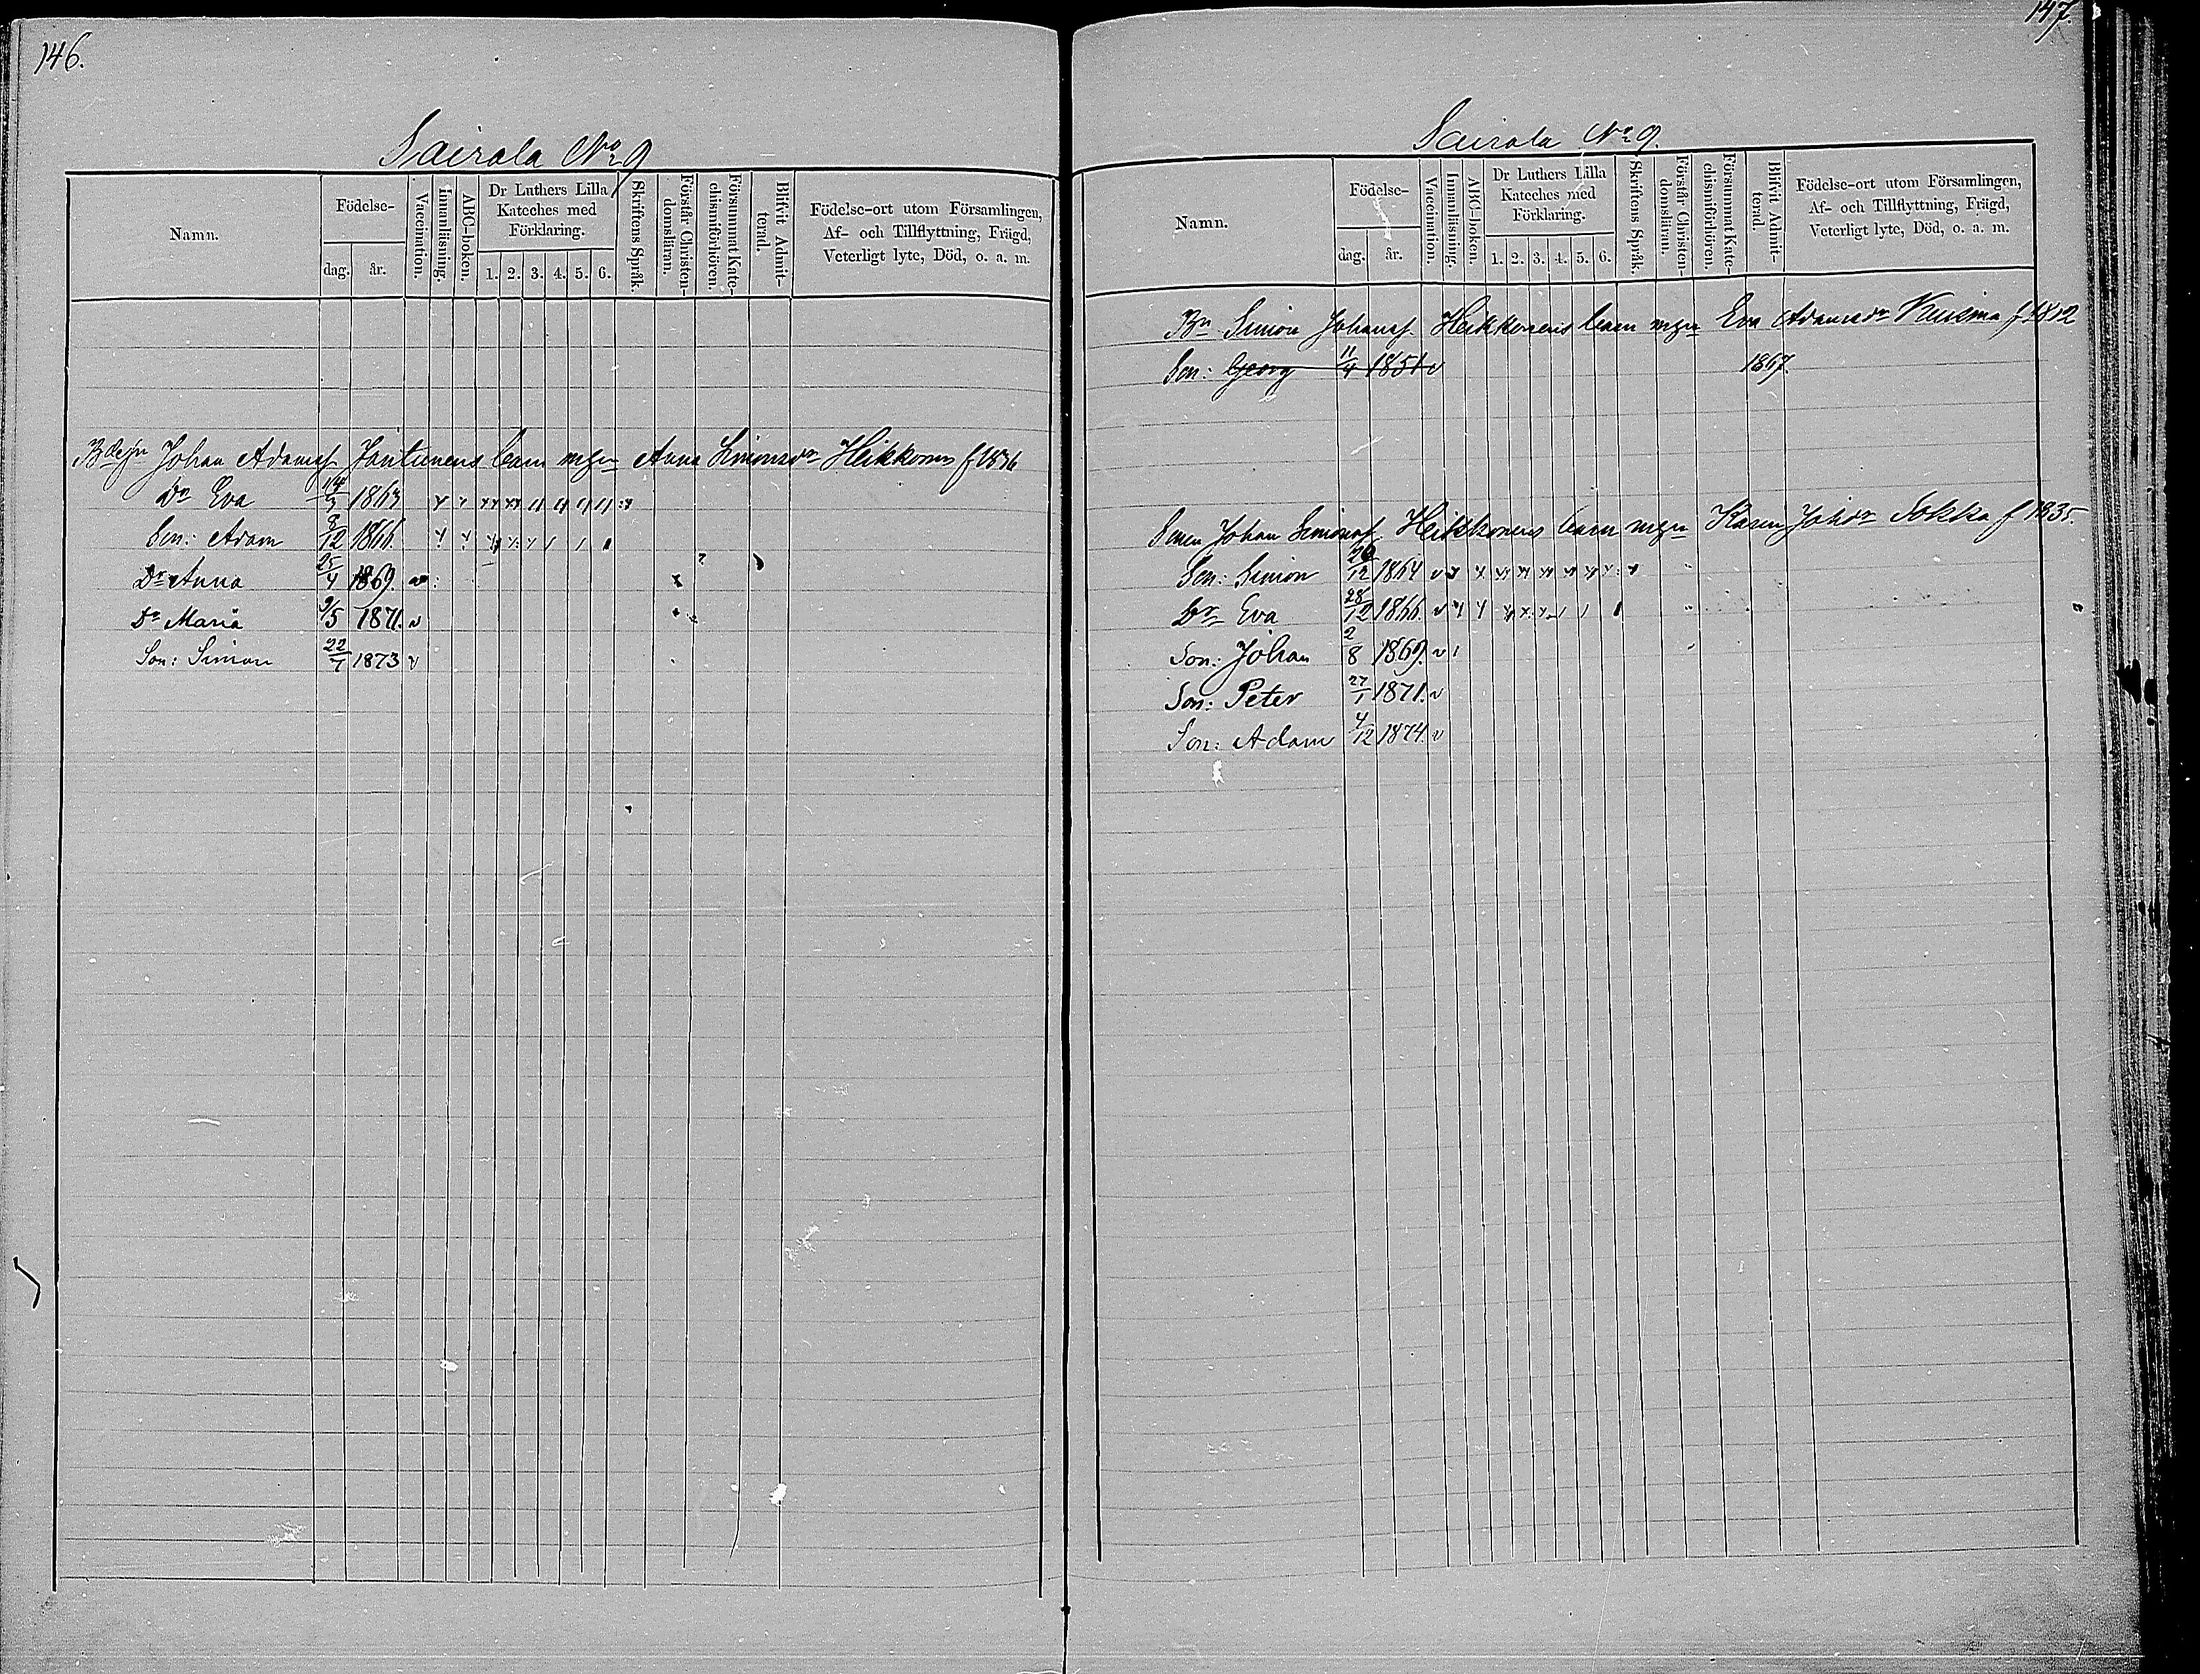 146.
Sairala No 9
Namn.
Födelse-
dag.
år.
Vaccination.
Innanläsning.
ABC-boken.
Dr Luthers Lilla
Kateches med
Förklaring.
1. 2. 3. 4. 5. 6.
Skriftens Språk.
Förstår Christen-
domsläran.
Försummat Kate-
chismiförhören.
Blifvit Admit-
terad.
Födelse-ort utom Församlingen,
Af- och Tillflyttning, Frägd,
Veterligt lyte, Död, o. a. m.
Johan Adamsf. Jantunens barn m Anna Simonsdr Heikkonen f 1836
Dr Eva 1863
Son: Adam 8/12 1866.
Dr Anna 25/4 1869.
Dr Maria 9/5 1871. v
Son: Simon 22/7 1873 v
147.
Sairala No 9.
Namn.
Födelse-
dag.
år.
Vaccination.
Innanläsning.
ABC-boken.
Dr Luthers Lilla
Kateches med
Förklaring.
1. 2. 3. 4. 5. 6.
Skriftens Språk.
Förstår Christen-
domsläran.
Försummat Kate-
chismiförhören.
Blifvit Admit-
terad.
Födelse-ort utom Församlingen,
Af- och Tillflyttning, Frägd,
Veterligt lyte, Död, o. a. m.
Bn Simon Johansf. Heikkonens barn m Eva Adamsdr Kuisma f 1812
Son: Georg 11/4 1851 v 1867.
Sonen Johan Simonsf. Heikkonens barn m Karin Johdr Sokka f 1835.
Son: Simon 26/12 1864 v
Dr Eva 28/12 1866. v
Son: Johan 2/8 1869. v
Son: Peter 27/1 1871. v
Son: Adam 4/12 1874. v